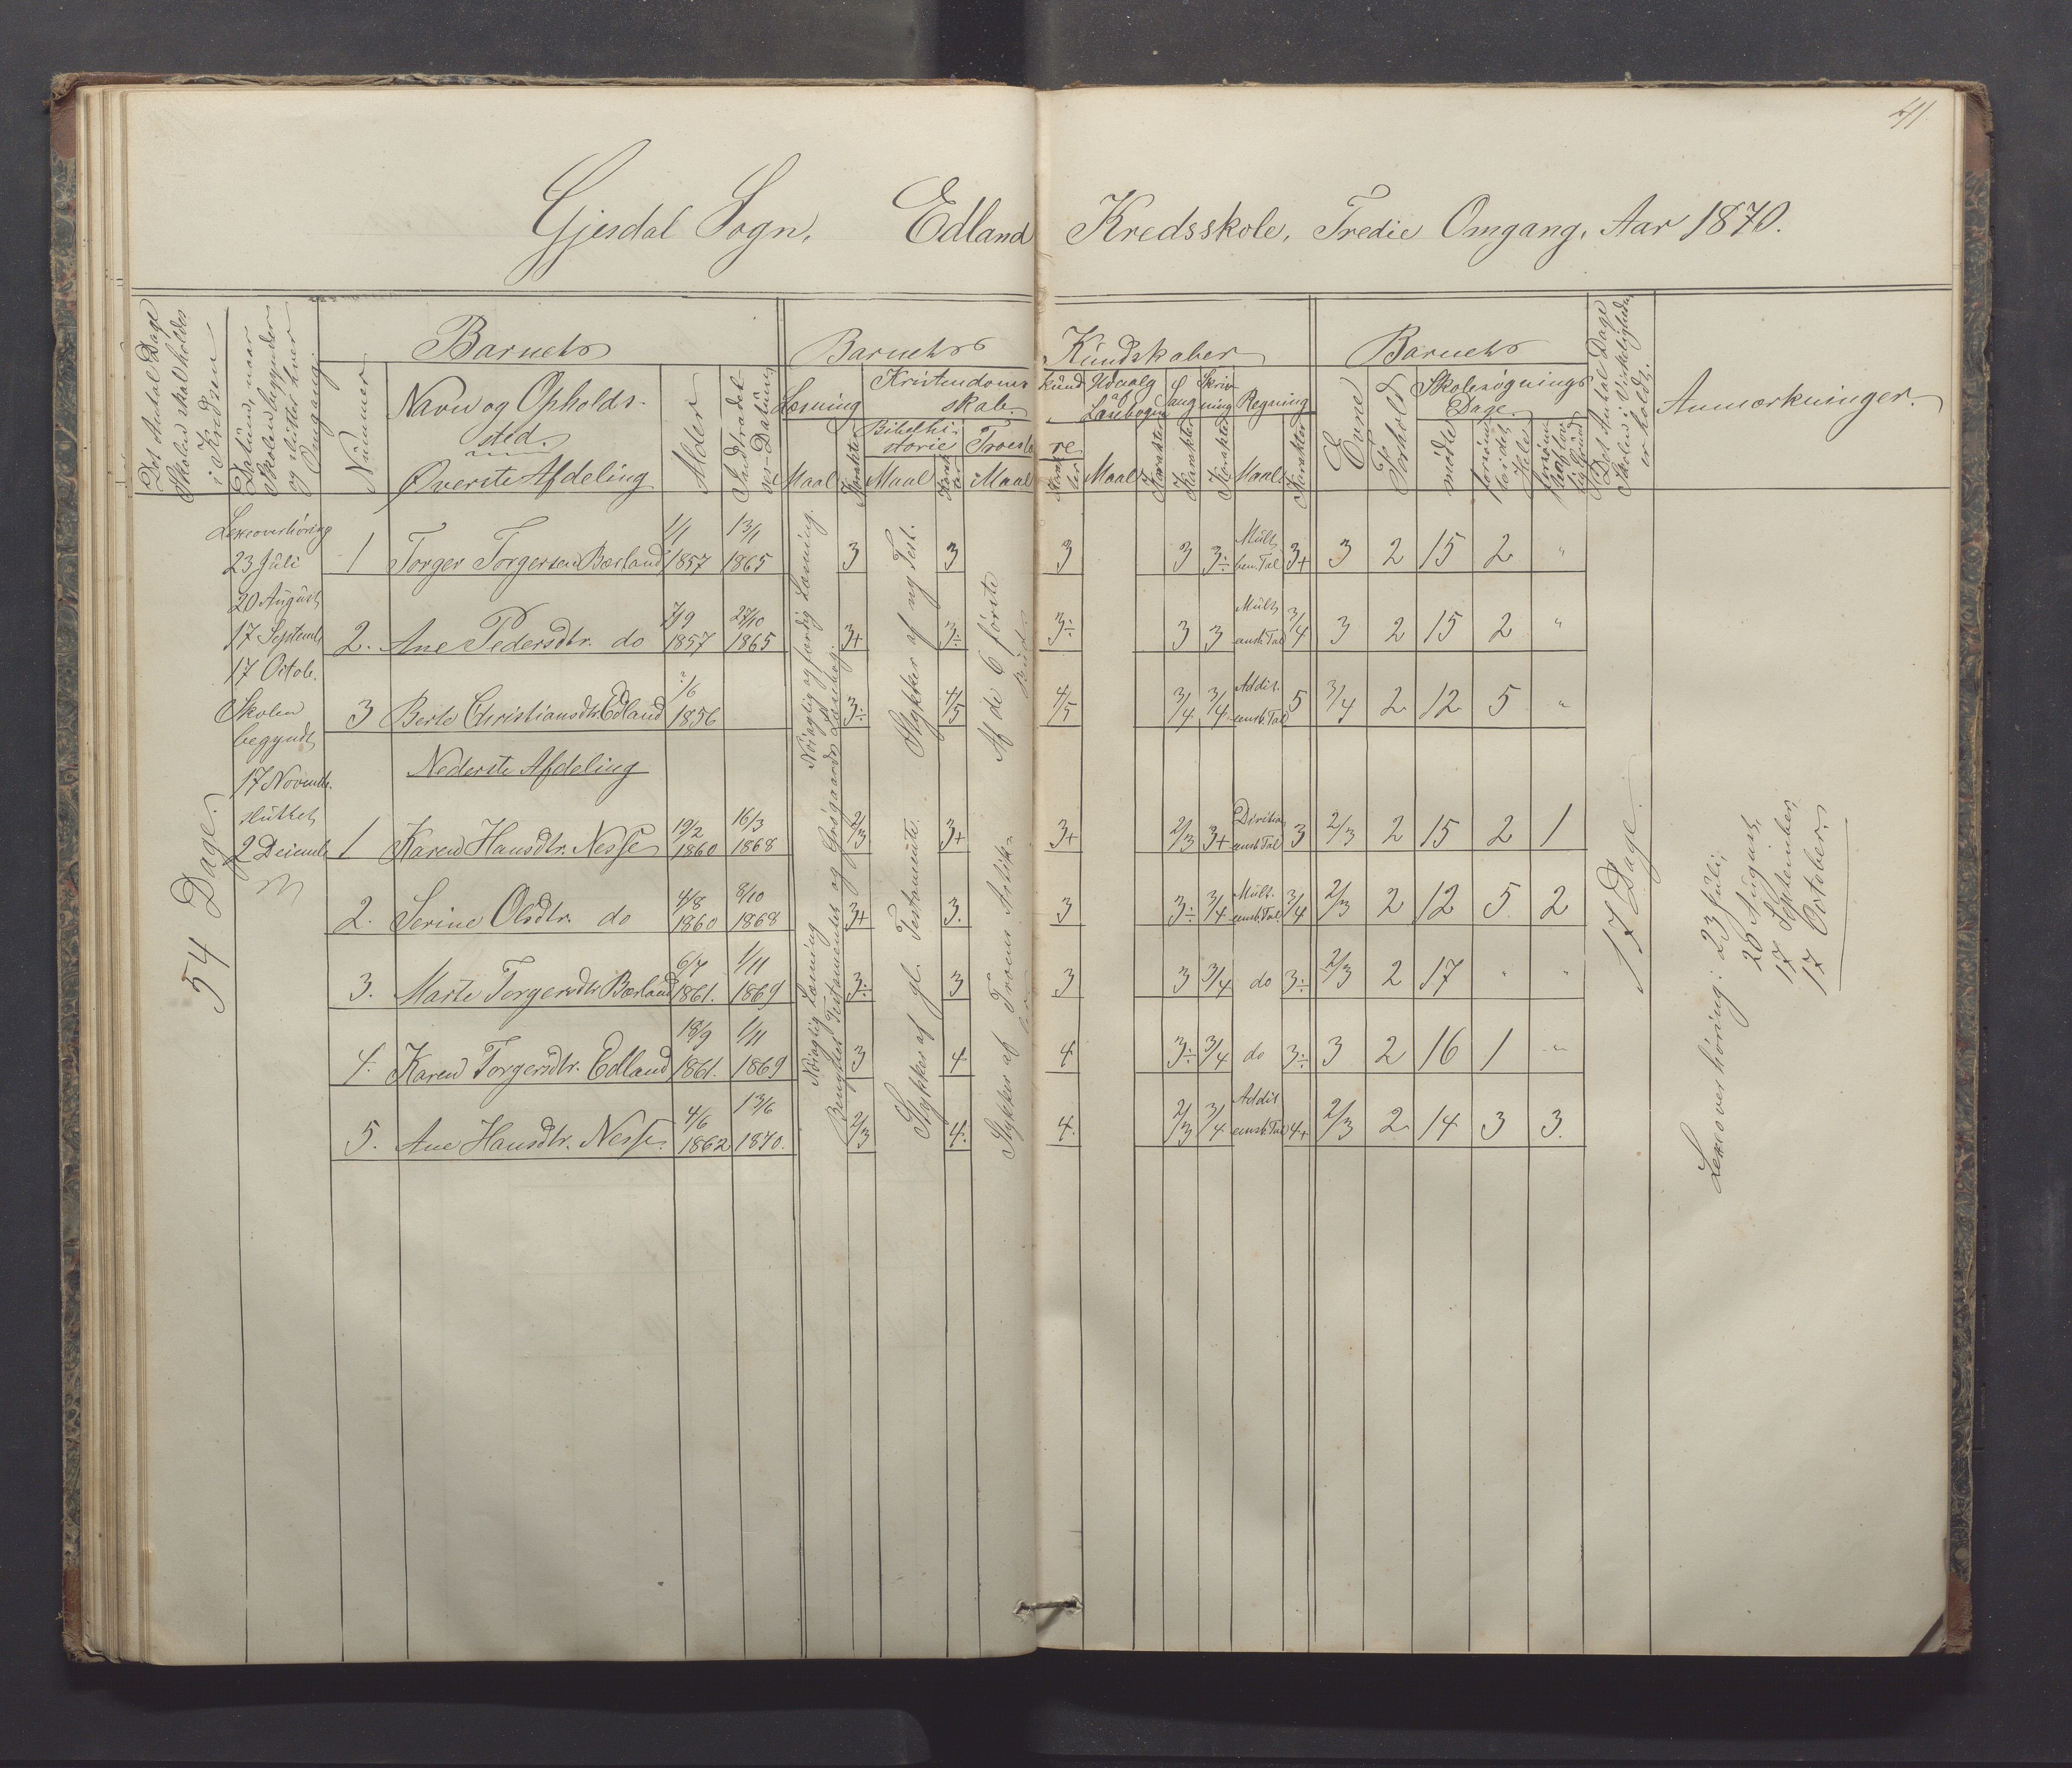 41
Gjesdal Sogn, Edland Kredsskole, Tredie Omgang, Aar 1870.
Det Antal Dage Skolen skal holdes i Kredsen
Datum, naar Skolen begynder og slutter hver Omgang.
Barnets
Nummer
Navn og Opholdssted.
Øverste Afdeling
Alder
Indtrædelses-Datum
Barnets Kundskaber
Læsning
Maal
Karakter
Kristendomskundskab.
Bibelhistorie
Maal
Karakter
Troeslære
Maal
Karakter
Udvalg af Læsebogen
Maal
Karakter
Sang
Karakter
Skrivning
Karakter
Regning
Maal
Karakter
Barnets
Evne
Forhold
Skolesøgnings Dage.
mødte
forsømte i det Hele
forsømte uden lovlig Grund
Det Antal Dage Skolen i Virkeligheden er holdt.
Anmærkninger.
54 Dage.
Lexeoverhøring
23 Juli
20 August
17 Septemb.
17 Octob.
Skolen
begyndt
17 Novemb.
sluttet
2 Decemb.
1 Torger Torgersen Bærland 1/1 1857 13/1 1865 3 3 3 3 3÷ Mult. ben. Tal 3+ 3 2 15 2 "
2. Ane Pedersdtr. do 7/9 1857 27/10 1865 3+ 3÷ 3÷ 3 3 Mult. eensb. Tal 3/4 3 2 15 2 "
3 Berte Christiansdtr. Edland /6 1856 3÷ 4/5 4/5 3/4 3/4 Addit. eensb. Tal 5 3/4 2 12 5 "
Nederste Afdeling
1 Karen Hansdtr. Nesse 19/2 1860 16/3 1868 2/3 3+ 3+ 2/3 3+ Division eensb. Tal 3 2/3 2 15 2 1
2. Serine Olsdtr. do 4/8 1860 8/10 1868 3+ 3. 3 3÷ 3/4 Mult. eensb. Tal 3/4 2/3 2 12 5 2
3. Marte Torgersdtr. Bærland 6/7 1861. 1/11 1869 3÷ 3 3 3 3/4 do 3÷ 2/3 2 17 " "
4. Karen Torgersdtr. Edland 18/9 1861. 1/11 1869 3 4 4 3÷ 3/4 do 3÷ 3 2 16 1 "
5. Ane Hansdtr. Nesse. 4/6 1862 13/6 1870. 2/3 4. 4. 2/3 3/4 Addit eensb. Tal 4+ 2/3 2 14 3 3.
Nøiagtig og færdig Læsning.
Nøiagtig Læsning
Benyttet Testamentet og Grøgaards Læsebog.
Stykker af ny Test.
Stykker af gl. Testamente.
Af de 6 første
Stykker af Troens Artikler
17 Dage.
Lexeoverhøring: 23 Juli,
20 August,
17 September,
17 October.